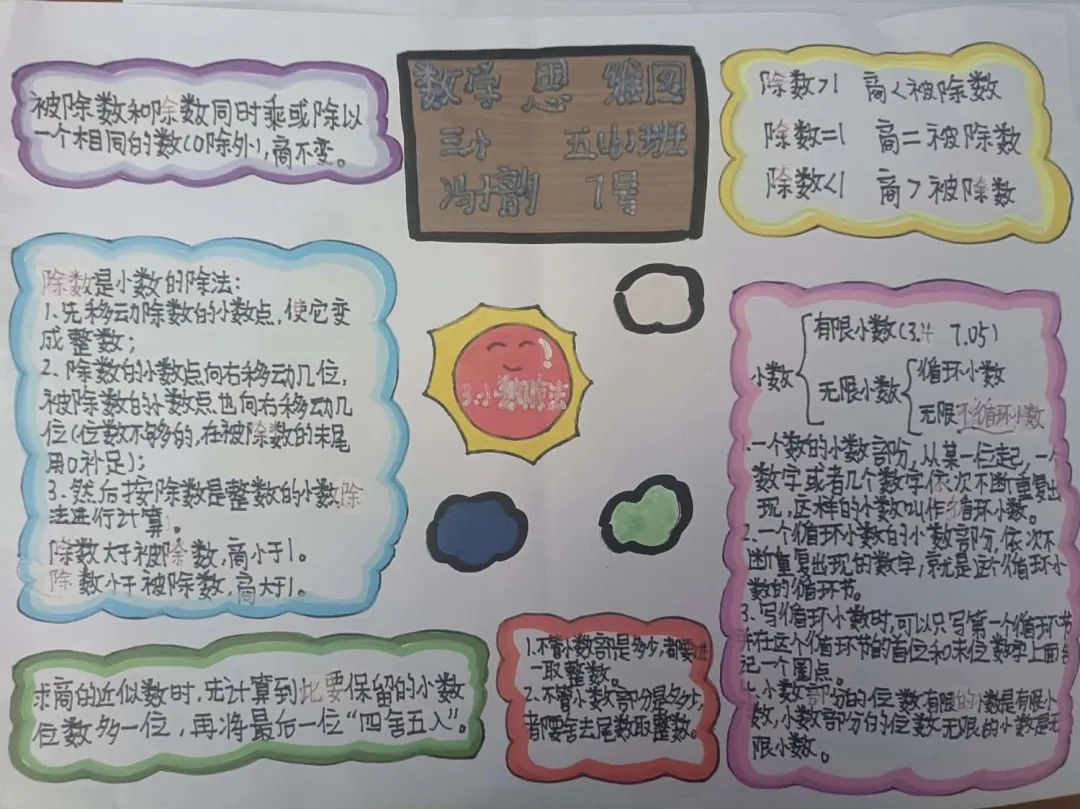 数学思维图
三小 五(4)班
冯小韵 7号
被除数和除数同时乘或除以
一个相同的数(0除外),商不变。
除数>1 商<被除数
除数=1 商=被除数
除数<1 商>被除数
除数是小数的除法:
1.先移动除数的小数点,使它变
成整数;
2.除数的小数点向右移动几位,
被除数的小数点也向右移动几
位(位数不够的,在被除数的末尾
用0补足);
3.然后按除数是整数的小数除
法进行计算。
除数大于被除数,商小于1。
除数小于被除数,商大于1。
3.小数除法
小数
有限小数(3.4 7.05)
无限小数
循环小数
无限不循环小数
1.一个数的小数部分,从某一位起,一个
数字或者几个数字依次不断重复出
现,这样的小数叫作循环小数。
2.一个循环小数的小数部分,依次不
断重复出现的数字,就是这个循环小
数的循环节。
3.写循环小数时,可以只写第一个循环节
并在这个循环节的首位和末位数字上面各
记一个圆点。
4.小数部分的位数有限的小数是有限小
数,小数部分的位数无限的小数是无
限小数。
求商的近似数时,先计算到比要保留的小数
位数多一位,再将最后一位“四舍五入”。
1.不管小数部是多少,都要进
一取整数。
2.不管小数部分是多少,
都要舍去尾数取整数。